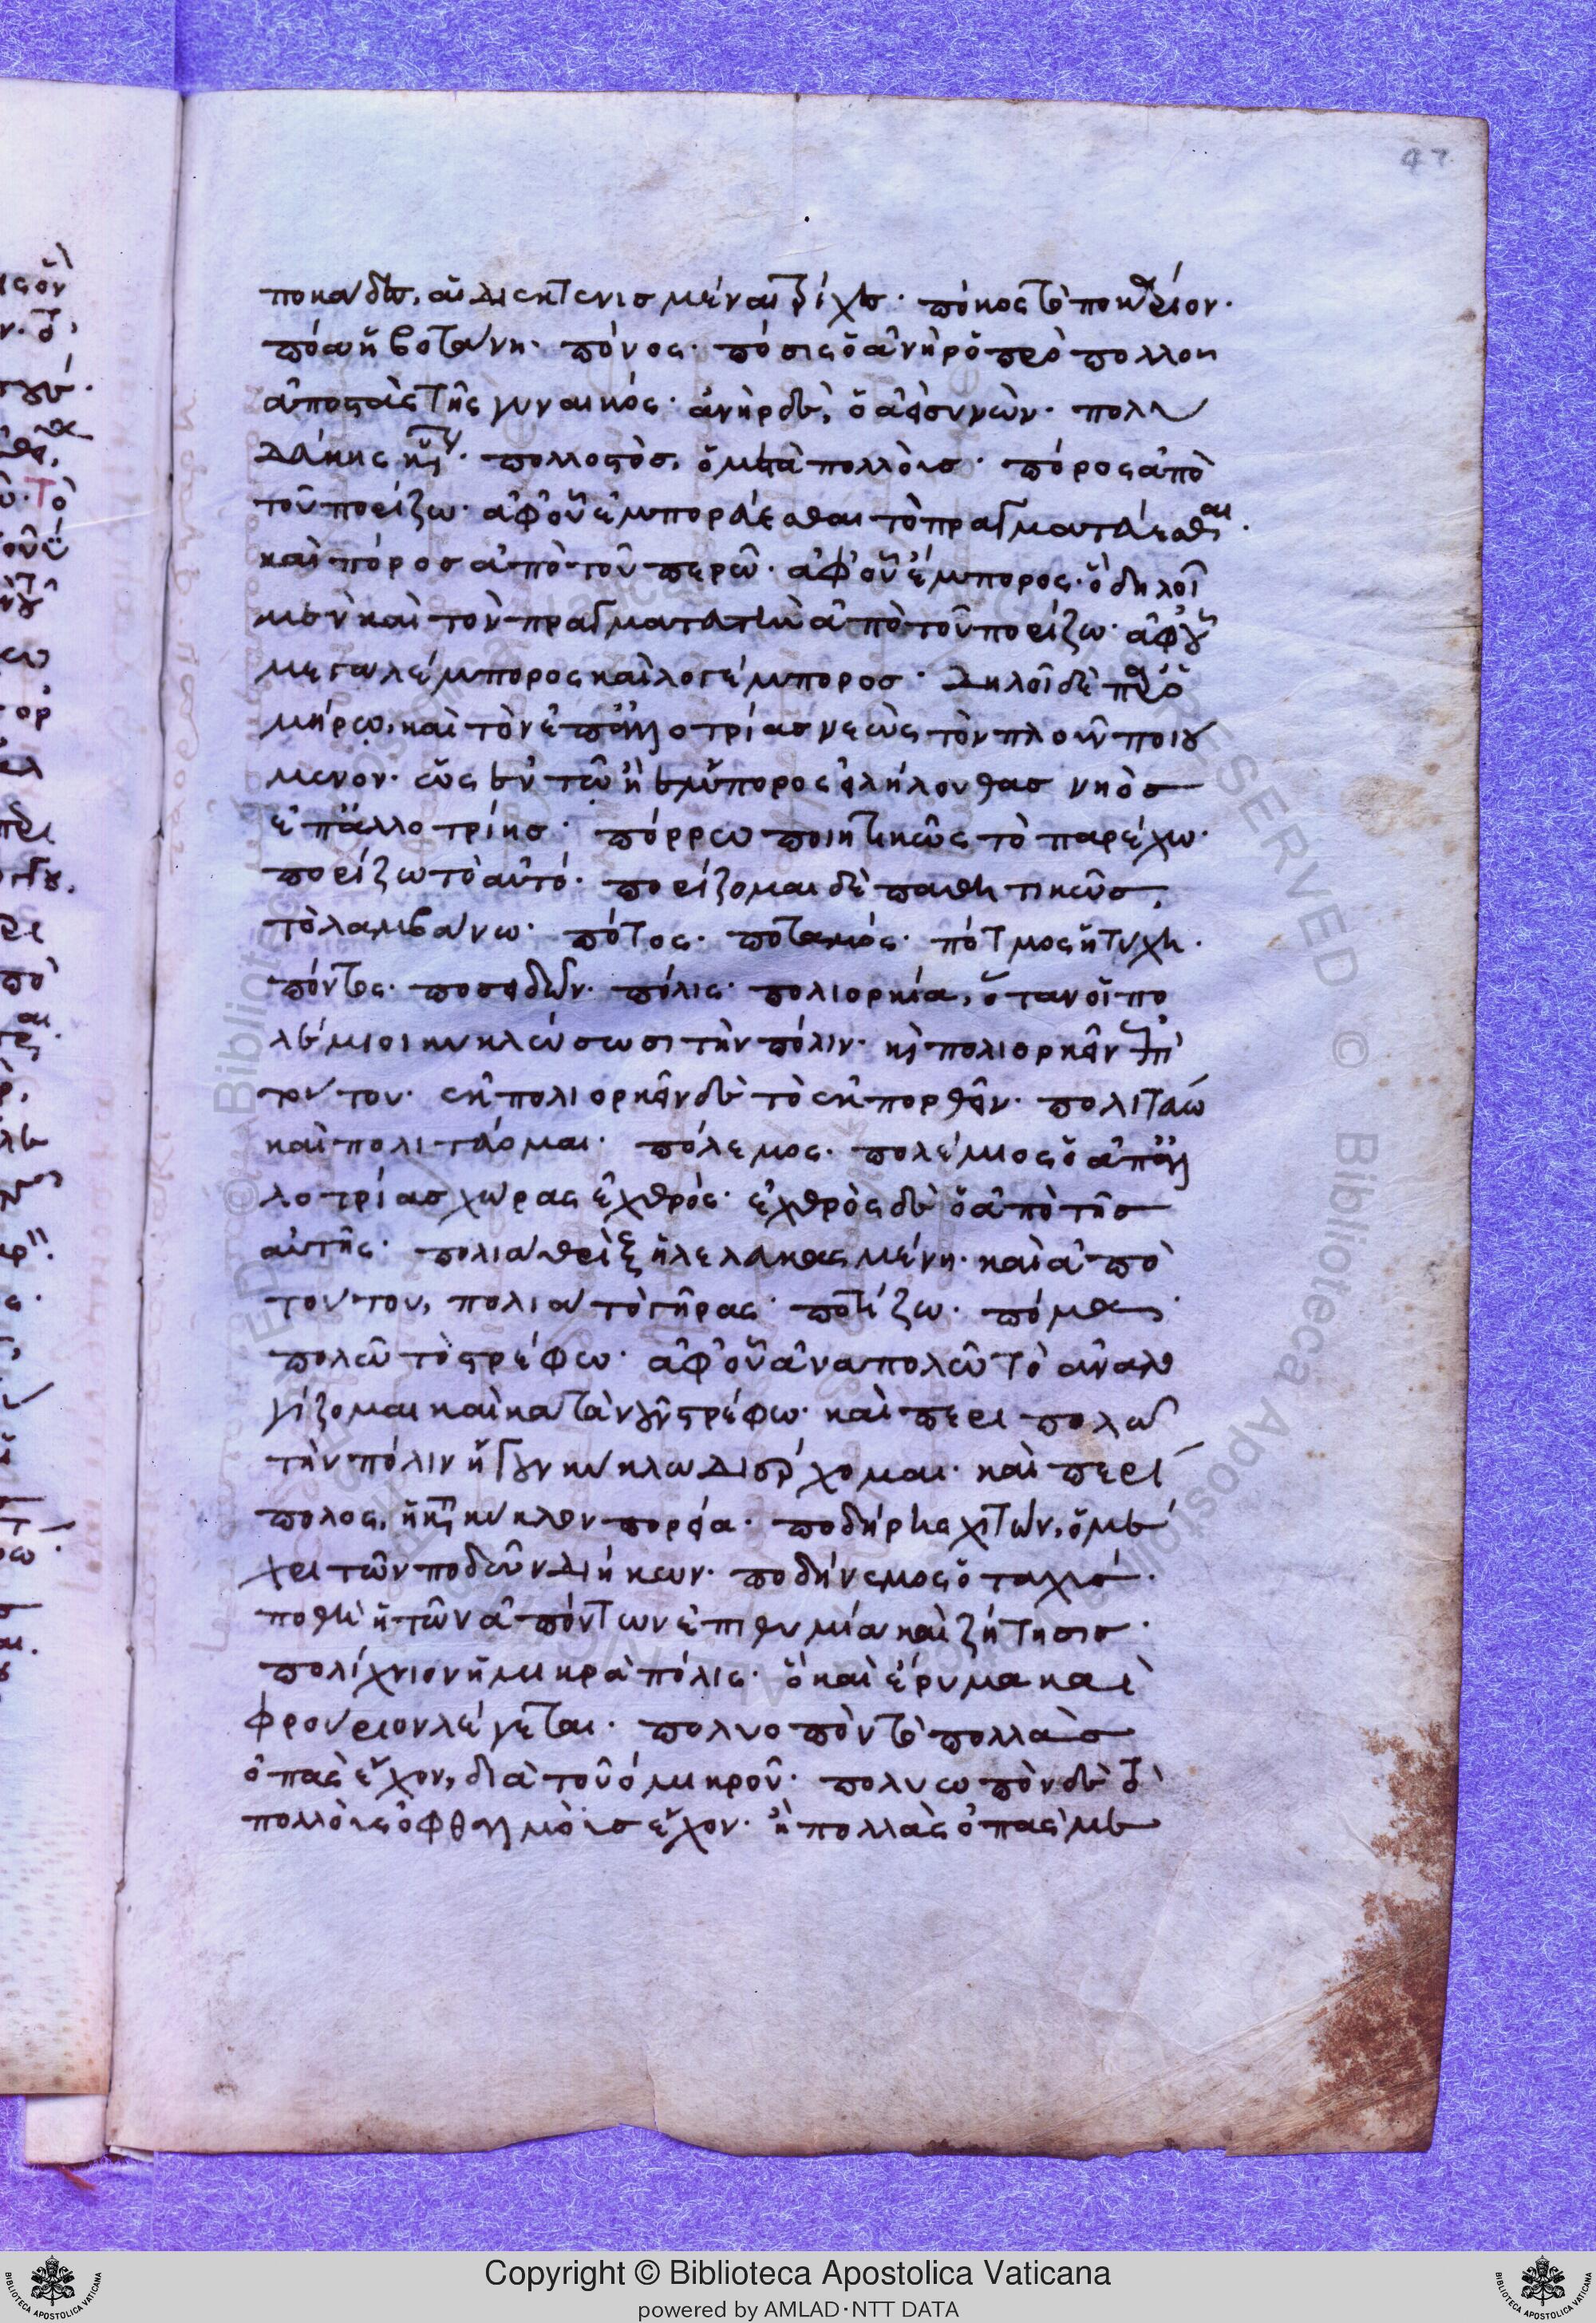 47
ποκάδες, αἱ διεκτενισμέναι τρίχες· πόκος τὸ ποκάριον·
πόα ἡ βοτάνη· πόνος· πόσις ὁ ἀνὴρ ὁ πρὸ πολλοῦ
ἀποστὰς τῆς γυναικός· ἀνὴρ δὲ, ὁ ἀεὶ συνών·
πολλοστὸς, ὁ μετὰ πολλοὺς· πόρος ἀπὸ
τοῦ πορίζω· ἀφ' οὗ ἐμπορεύεσθαι τὸ πραγματεύεσθαι·
καὶ πόρος ἀπὸ τοῦ περῶ· ἀφ' οὗ ἔμπορος· ὃ δηλοῖ
μὲν καὶ τὸν πραγματευτὴν ἀπὸ τοῦ πορίζω· ἀφ' οὗ
μεγαλέμπορος καὶ λογέμπορος· δηλοῖ δὲ παρ' Ὁ
μήρω, καὶ τὸν ἐπ' ἀλλοτρίας νεὼς τὸν πλοῦν ποιού
μενον· ὡς ἐν τῷ ἢ ἔμπορος εἰλήλουθας νηὸς
ἐπ' ἀλλοτρίης· πόρρω ποιητικῶς τὸ παρέχω·
πορίζω τὸ αὐτό· πορίζομαι δὲ παθητικῶς,
τὸ λαμβάνω· πότος· ποταμός· πότμος ἡ τύχη·
πόντος· ποσειδῶν· πόλις· πολιορκία, ὅταν οἱ πο
λέμιοι κυκλώσωσι τὴν πόλιν· καὶ πολιορκεῖν ἐπὶ
τούτου· ἐκπολιορκεῖν δὲ τὸ ἐκπορθεῖν· πολιτεύω
καὶ πολιτεύομαι· πόλεμος· πολέμιος ὁ ἀπ' ἀλ
λοτρίας χώρας ἐχθρός· ἐχθρὸς δὲ ὁ ἀπὸ τῆς
αὐτῆς· πολιὰ θρὶξ ἡ λελευκασμένη· καὶ ἀπὸ
τούτου, πολιὰ τὸ γῆρας· ποτίζω· πόμα
πολῶ τὸ στρέφω· ἀφ' οὗ ἀναπολῶ τὸ ἀναλο
γίζομαι καὶ κατὰ νοῦν στρέφω· καὶ περιπολῶ
τὴν πόλιν ἤγουν κύκλω διέρχομαι· καὶ περί
πολος, ἡ κύκλον πορεία· ποδήρης χιτών, ὁ μέ
χρι τῶν ποδῶν διήκων· ποδήνεμος ὁ ταχύς·
ποθὴ ἡ τῶν ἀπόντων ἐπιθυμία καὶ ζήτησις·
πολίχνιον ἡ μικρὰ πόλις· ὃ καὶ ἔρυμα καὶ
φρούριον λέγεται· πολυοπὸν τὸ πολλὰς
ὀπὰς ἔχον, διὰ τοῦ ο μικροῦ· πολυωπὸν δὲ τὸ
πολλοὺς ὀφθαλμοὺς ἔχον· ἢ πολλὰς ὀπὰς με
Copyright © Biblioteca Apostolica Vaticana
powered by AMLAD·NTT DATA